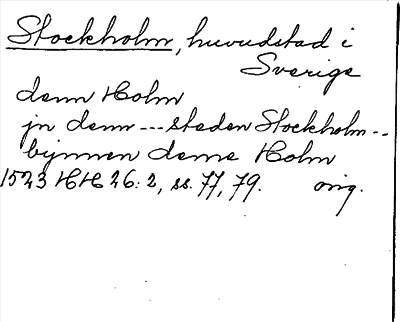 Stockholm, huvudstad i
Sverige
denn Holm
jn denn --- steden Stockholm --
bijnnen deme Holm
1523 HH 26:2, ss. 77, 79. orig.